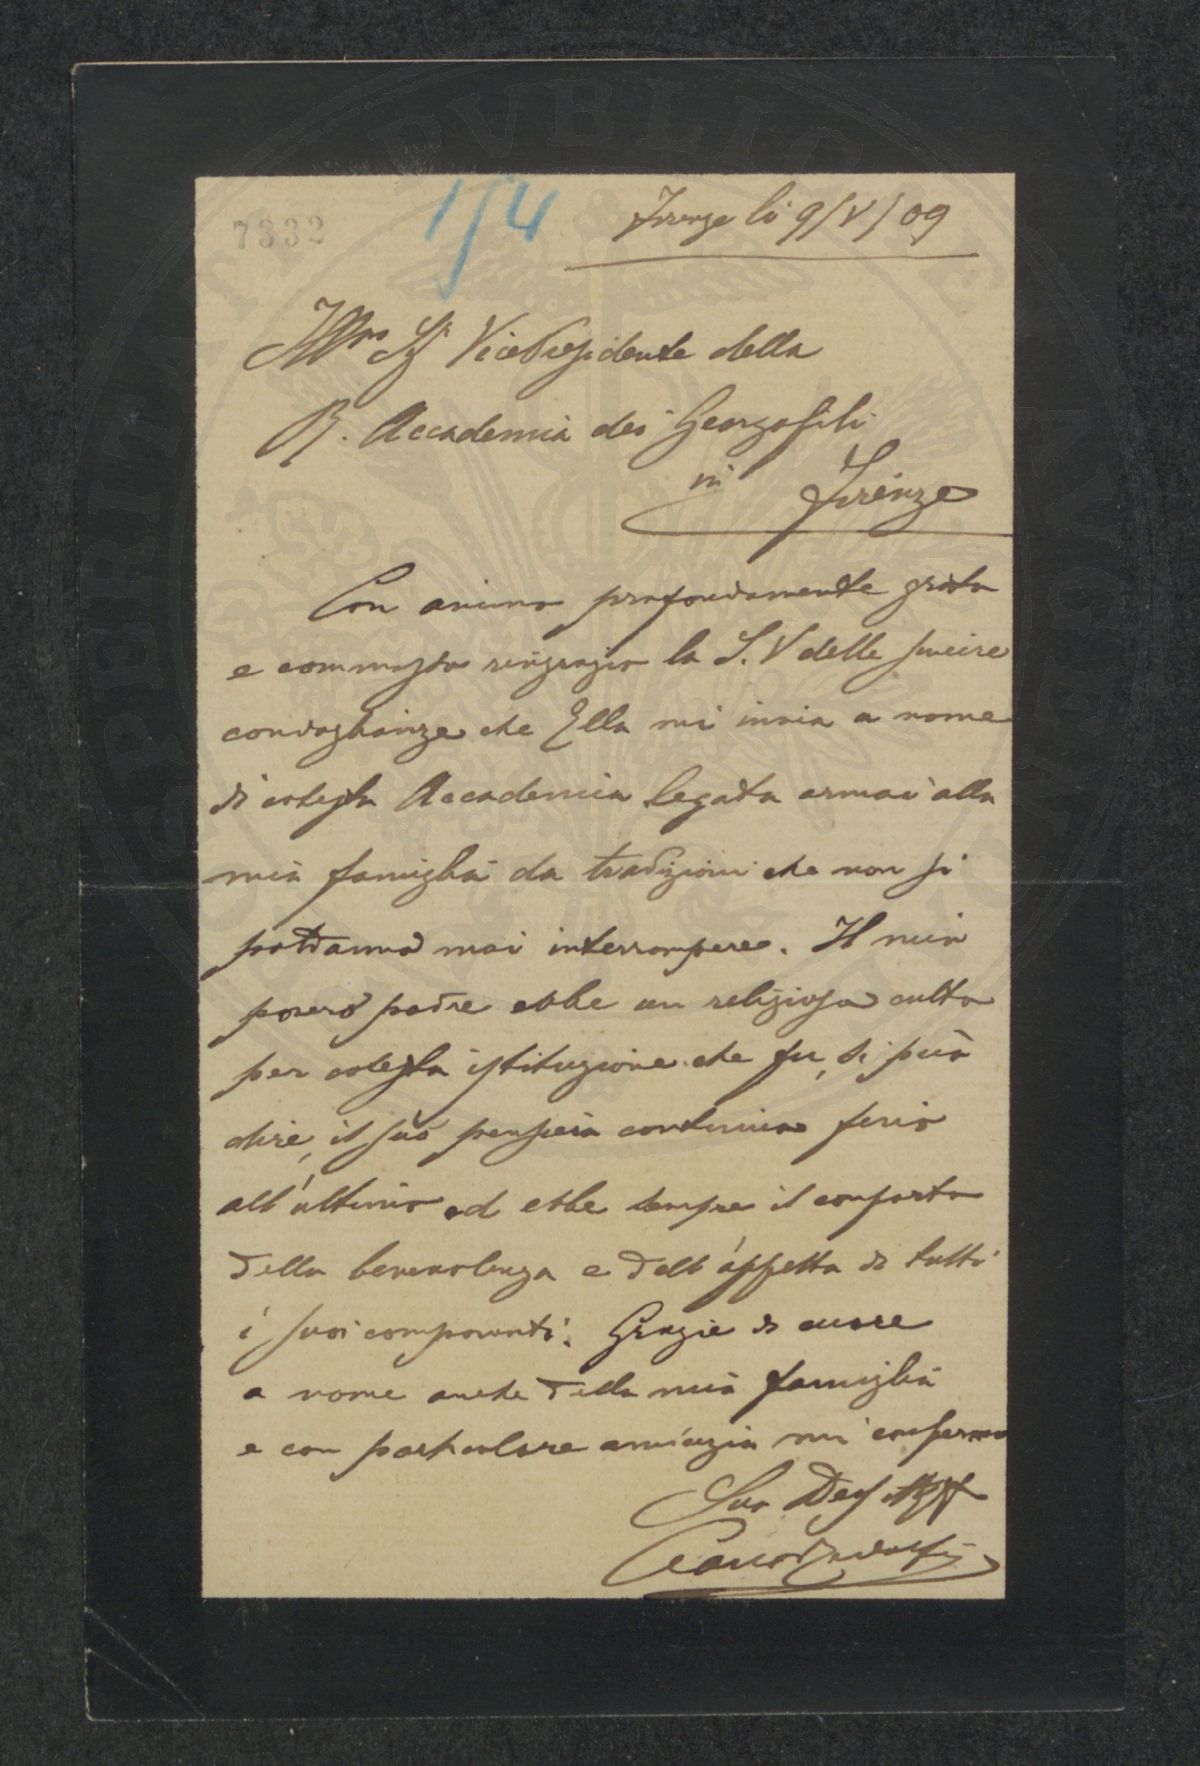 7332
1/4
Firenze li 9/V/09
Ill.mo Sig. VicePresidente della
R. Accademia dei Georgofili
in Firenze
Con animo profondamente grato
e commosso ringrazio la S. V delle sincere
condoglianze che Ella mi invia a nome
di cotesta Accademia legata ormai alla
mia famiglia da tradizioni che non si
potranno mai interrompere. Il mio
povero padre ebbe un religioso culto
per cotesta istituzione che fu, si può
dire, il suo pensiero continuo fino
all'ultimo ed ebbe sempre il conforto
della benevolenza e dell'affetto di tutti
i suoi componenti. Grazie di cuore
a nome anche della mia famiglia
e con particolare amicizia mi confermo
Suo
Carlo Ridolfi